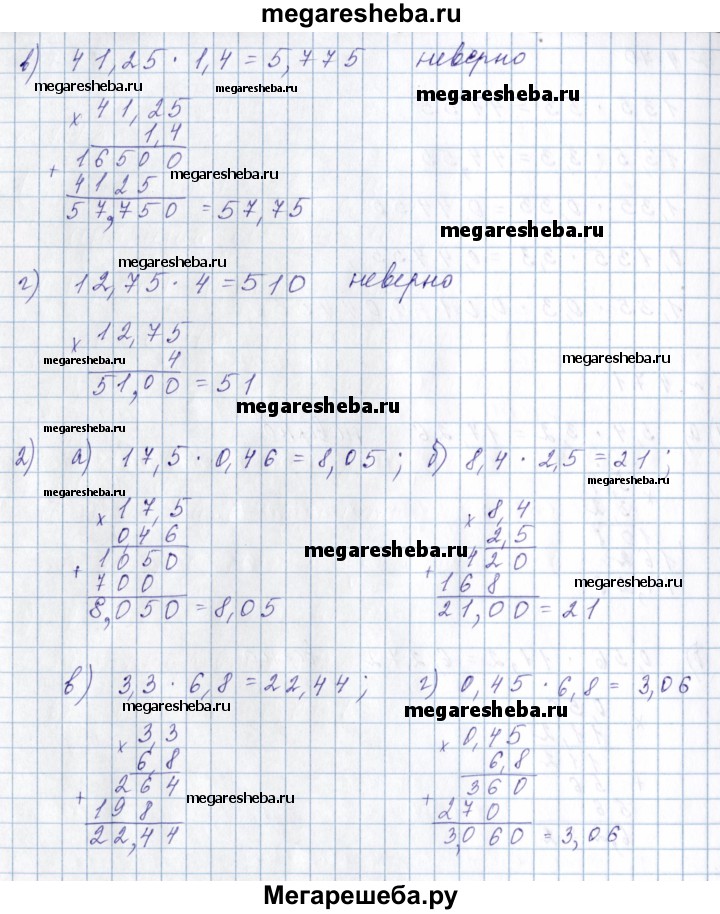 megaresheba.ru
в) 41,25 · 1,4 = 5,775 неверно
megaresheba.ru megaresheba.ru megaresheba.ru
× 41,25
1,4
+ 16500 megaresheba.ru
4125
57,750 = 57,75
megaresheba.ru
megaresheba.ru
г) 12,75 · 4 = 510 неверно
× 12,75
megaresheba.ru 4 megaresheba.ru
51,00 = 51
megaresheba.ru
megaresheba.ru
2) а) 17,5 · 0,46 = 8,05 ; б) 8,4 · 2,5 = 21 ;
megaresheba.ru
megaresheba.ru
× 17,5
0,46
+ 1050
700
8,050 = 8,05
× 8,4
2,5
+ 420
168
21,00 = 21
megaresheba.ru
megaresheba.ru
в) 3,3 · 6,8 = 22,44 ; г) 0,45 · 6,8 = 3,06
megaresheba.ru megaresheba.ru
× 3,3
6,8
+ 264
198
22,44
megaresheba.ru
× 0,45
6,8
+ 360
270
3,060 = 3,06
Мегарешеба.ру